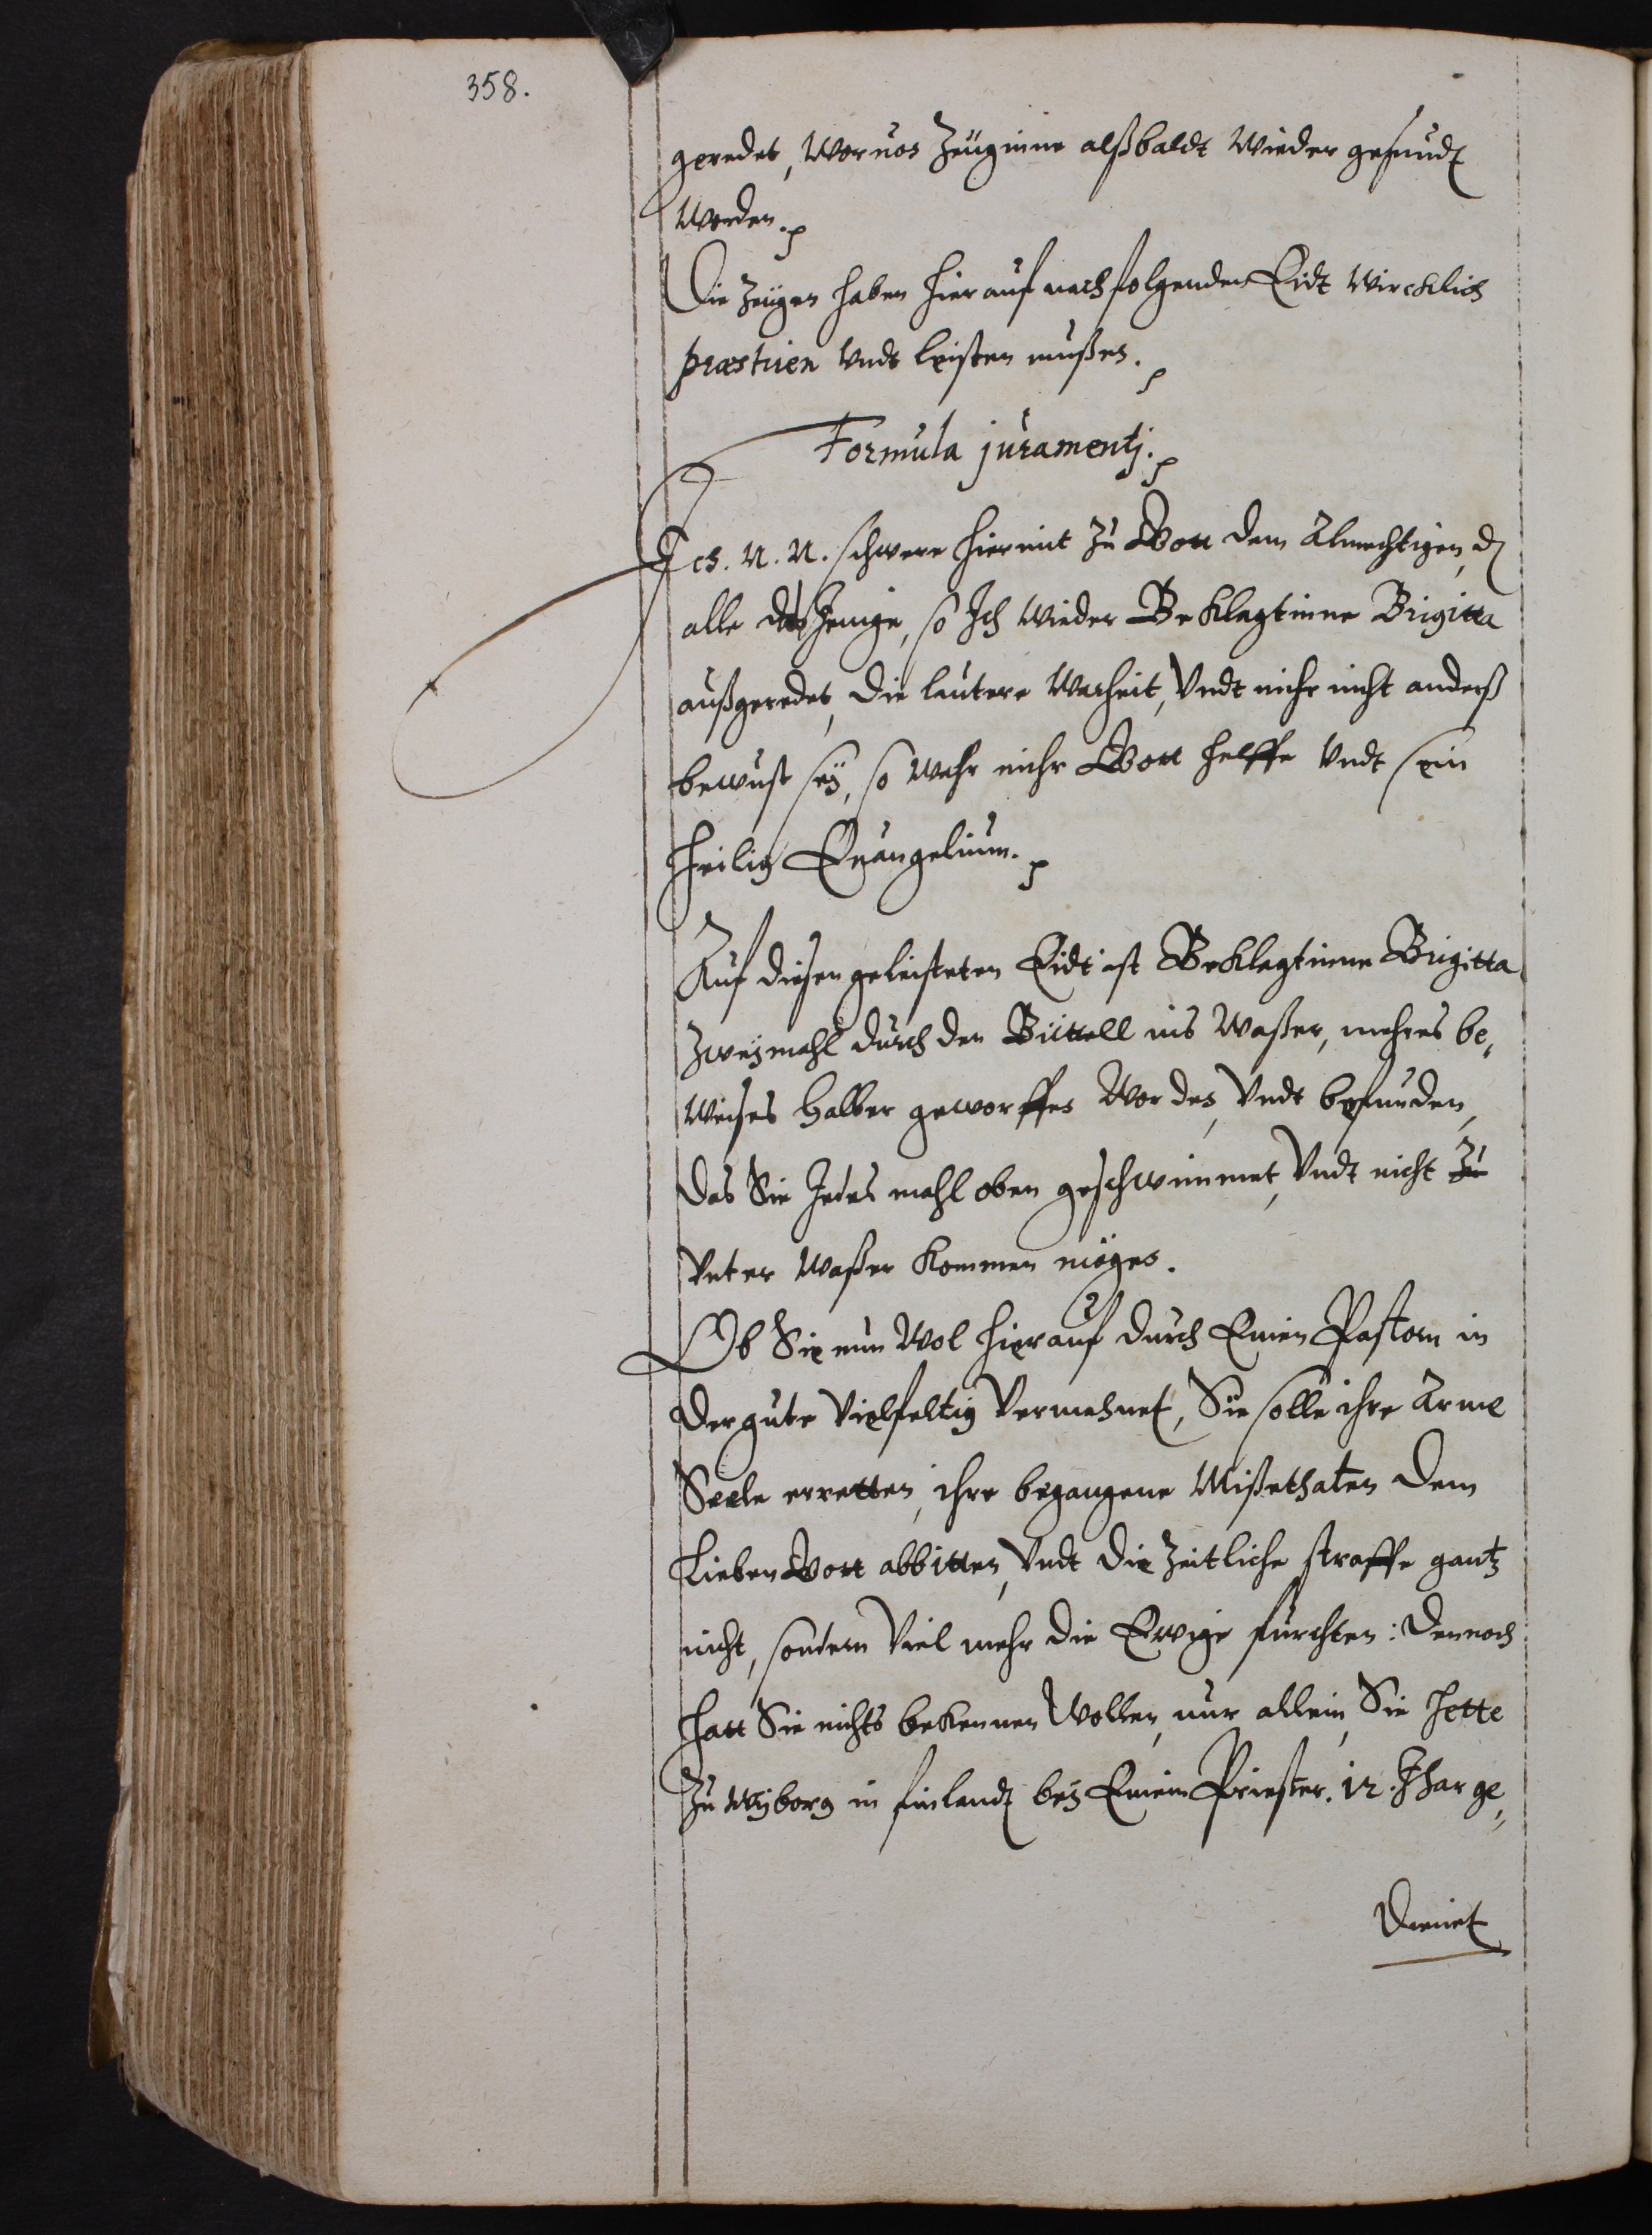 358.
geredet, Worvon Zeüginne alßbaldt Wieder gesundt
Worden.
Die Zeügen haben hierauf nachfolgenden Eidt Wircklich
præstiren Vndt leisten mußen.
Formula juramentj.
Ich. N. N. schwere hiermit zu Gott dem Almechtigen, d
alle das Jenige, so Ich Wieder Beklagtinne Brigitta
außgeredet, die lautere Warheit, Vndt mihr nicht anderß
bewust seÿ, so Wahr mihr Gott helffe Vndt sein
Heilig Evangelium.
Auf diesen geleisteten Eidt ist Beklagtinne Brigitta
Zweÿmahl durch den Büttell ins Waßer, mehres be,
Weises halber geworffen Worden, Vndt befunden,
das Sie Jedes mahl oben geschwimmet, Vndt nicht zu
Vnter Waßer kommen mögen.
Ob Sie nun Wol hierauf durch Einen Pastorn in
der güte Vielfeltig Vermahnet, Sie solle ihre Arme
Seele erretten, ihre begangene Mißethaten dem
Lieben Gott abbitten, Vndt die Zeitliche straffe gantz
nicht, sondern Viel mehr die Ewige fürchten: dennoch
hatt Sie nichts bekennen Wollen, nur allein, Sie hette
Zu Wÿborg in finlandt beÿ Einem Priester. 12. Jhar ge,
dienet